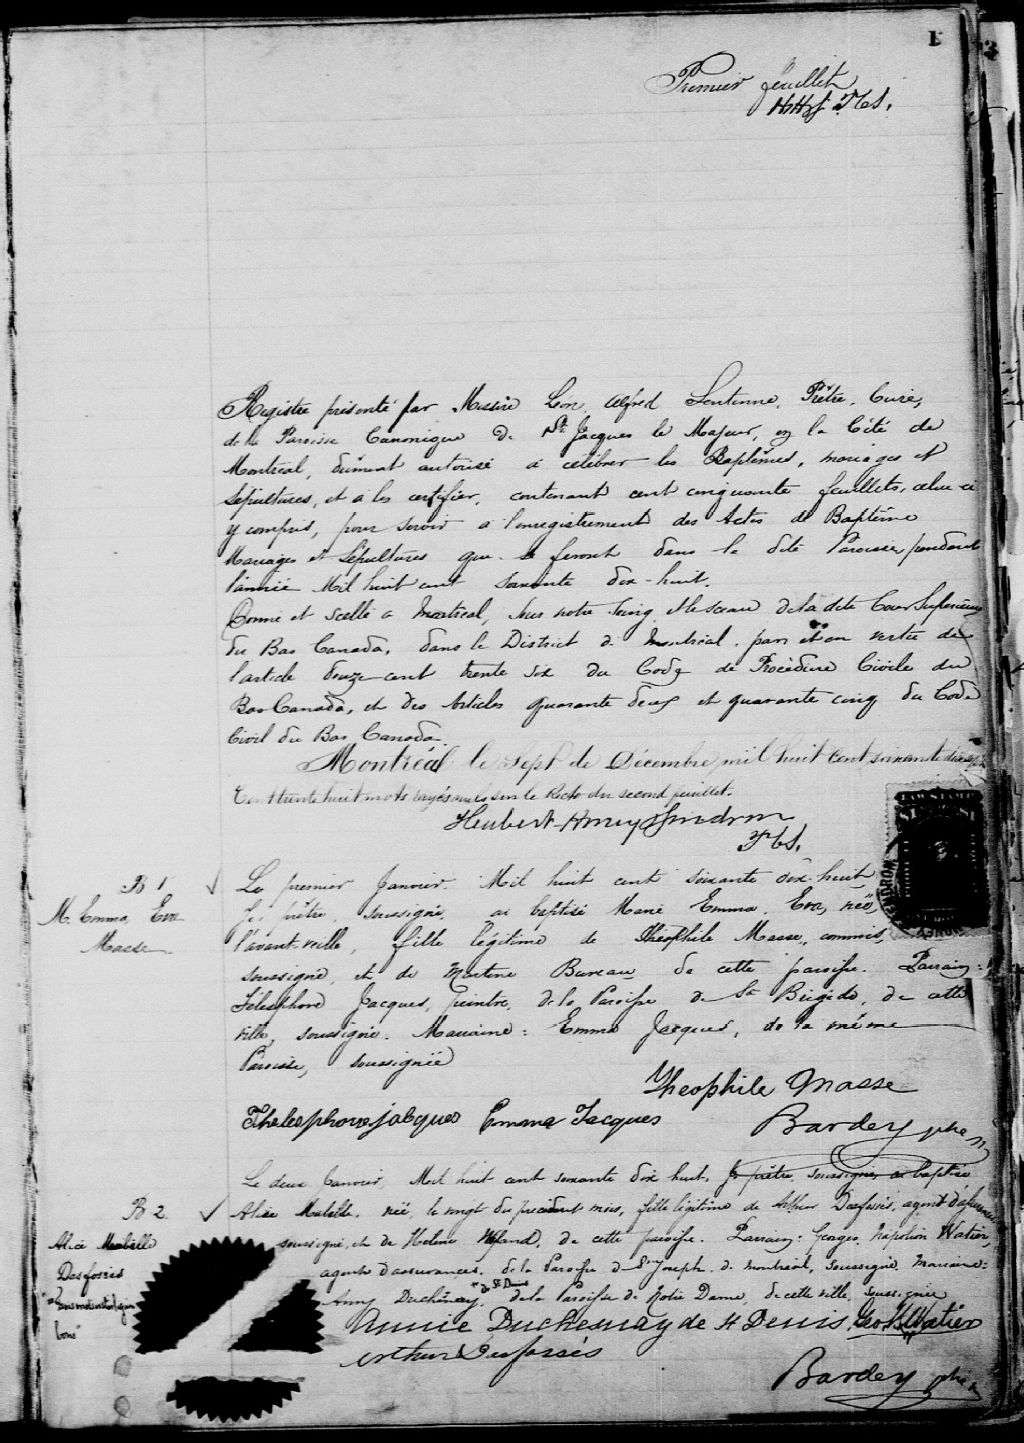 1
3
Premier feuillet
Registre présenté par Messire Léon Alfred Sentenne, Prêtre, Curé,
de la Paroisse Canonique de St Jacques le Majeur, en la Cité de
Montréal, dûment autorisé à célébrer les Baptêmes, mariages et
Sépultures, et à les certifier, contenant cent cinquante feuillets, celui-ci
y compris, pour servir à l'enregistrement des Actes de Baptême
Mariages et Sépultures que se feront dans la dite Paroisse, pendant
l'année Mil huit cent soixante dix-huit.
Donné et scellé à Montréal, sous notre seing et le sceau de la dite Cour Supérieure
du Bas Canada, dans le District de Montréal, par et en vertu de
l'article douze-cent trente six du Code de Procédure Civile du
Bas Canada, et des Articles quarante deux et quarante cinq du Code
Civil du Bas Canada.
Montréal le Sept de Décembre mil huit cent soixante dix sept
Cent trente huit mots rayés nuls sur le Recto du second feuillet.
B 1
M. Emma, Eva
Masse
Le premier Janvier Mil huit cent soixante dix-huit
Je, prêtre, soussigné, ai baptisé Marie Emma, Eva, née
l'avant-veille, fille légitime de Théophile Masse, commis,
soussigné, et de Martine Bureau de cette paroisse. Parrain:
Télesphore Jacques, peintre, de la Paroisse de Ste Brigide, de cette
ville, soussigné. Marraine: Emma Jacques, de la même
Paroisse, soussignée
Theophile Masse
Thelesphore jacques Emma Jacques
Bardey ptre
B 2
Alice Mabille
Desfossés
Le deux Janvier Mil huit cent soixante dix huit, Je prêtre soussigné, ai baptisé
Alice Mabille, née le vingt du précédent mois, fille légitime de Arthur Desfossés, agent d'assurances
soussigné, et de Helene, de cette paroisse. Parrain: Georges Napoléon Watier,
agent d'assurances, de la Paroisse de St Joseph de Montréal, soussigné. Marraine:
"de St Denis
Anny Duchesnay, de la Paroisse de Notre Dame, de cette ville, soussignée
Annie Duchesnay de St Denis, Geo N Watier
Arthur Desfossés
Bardey ptre